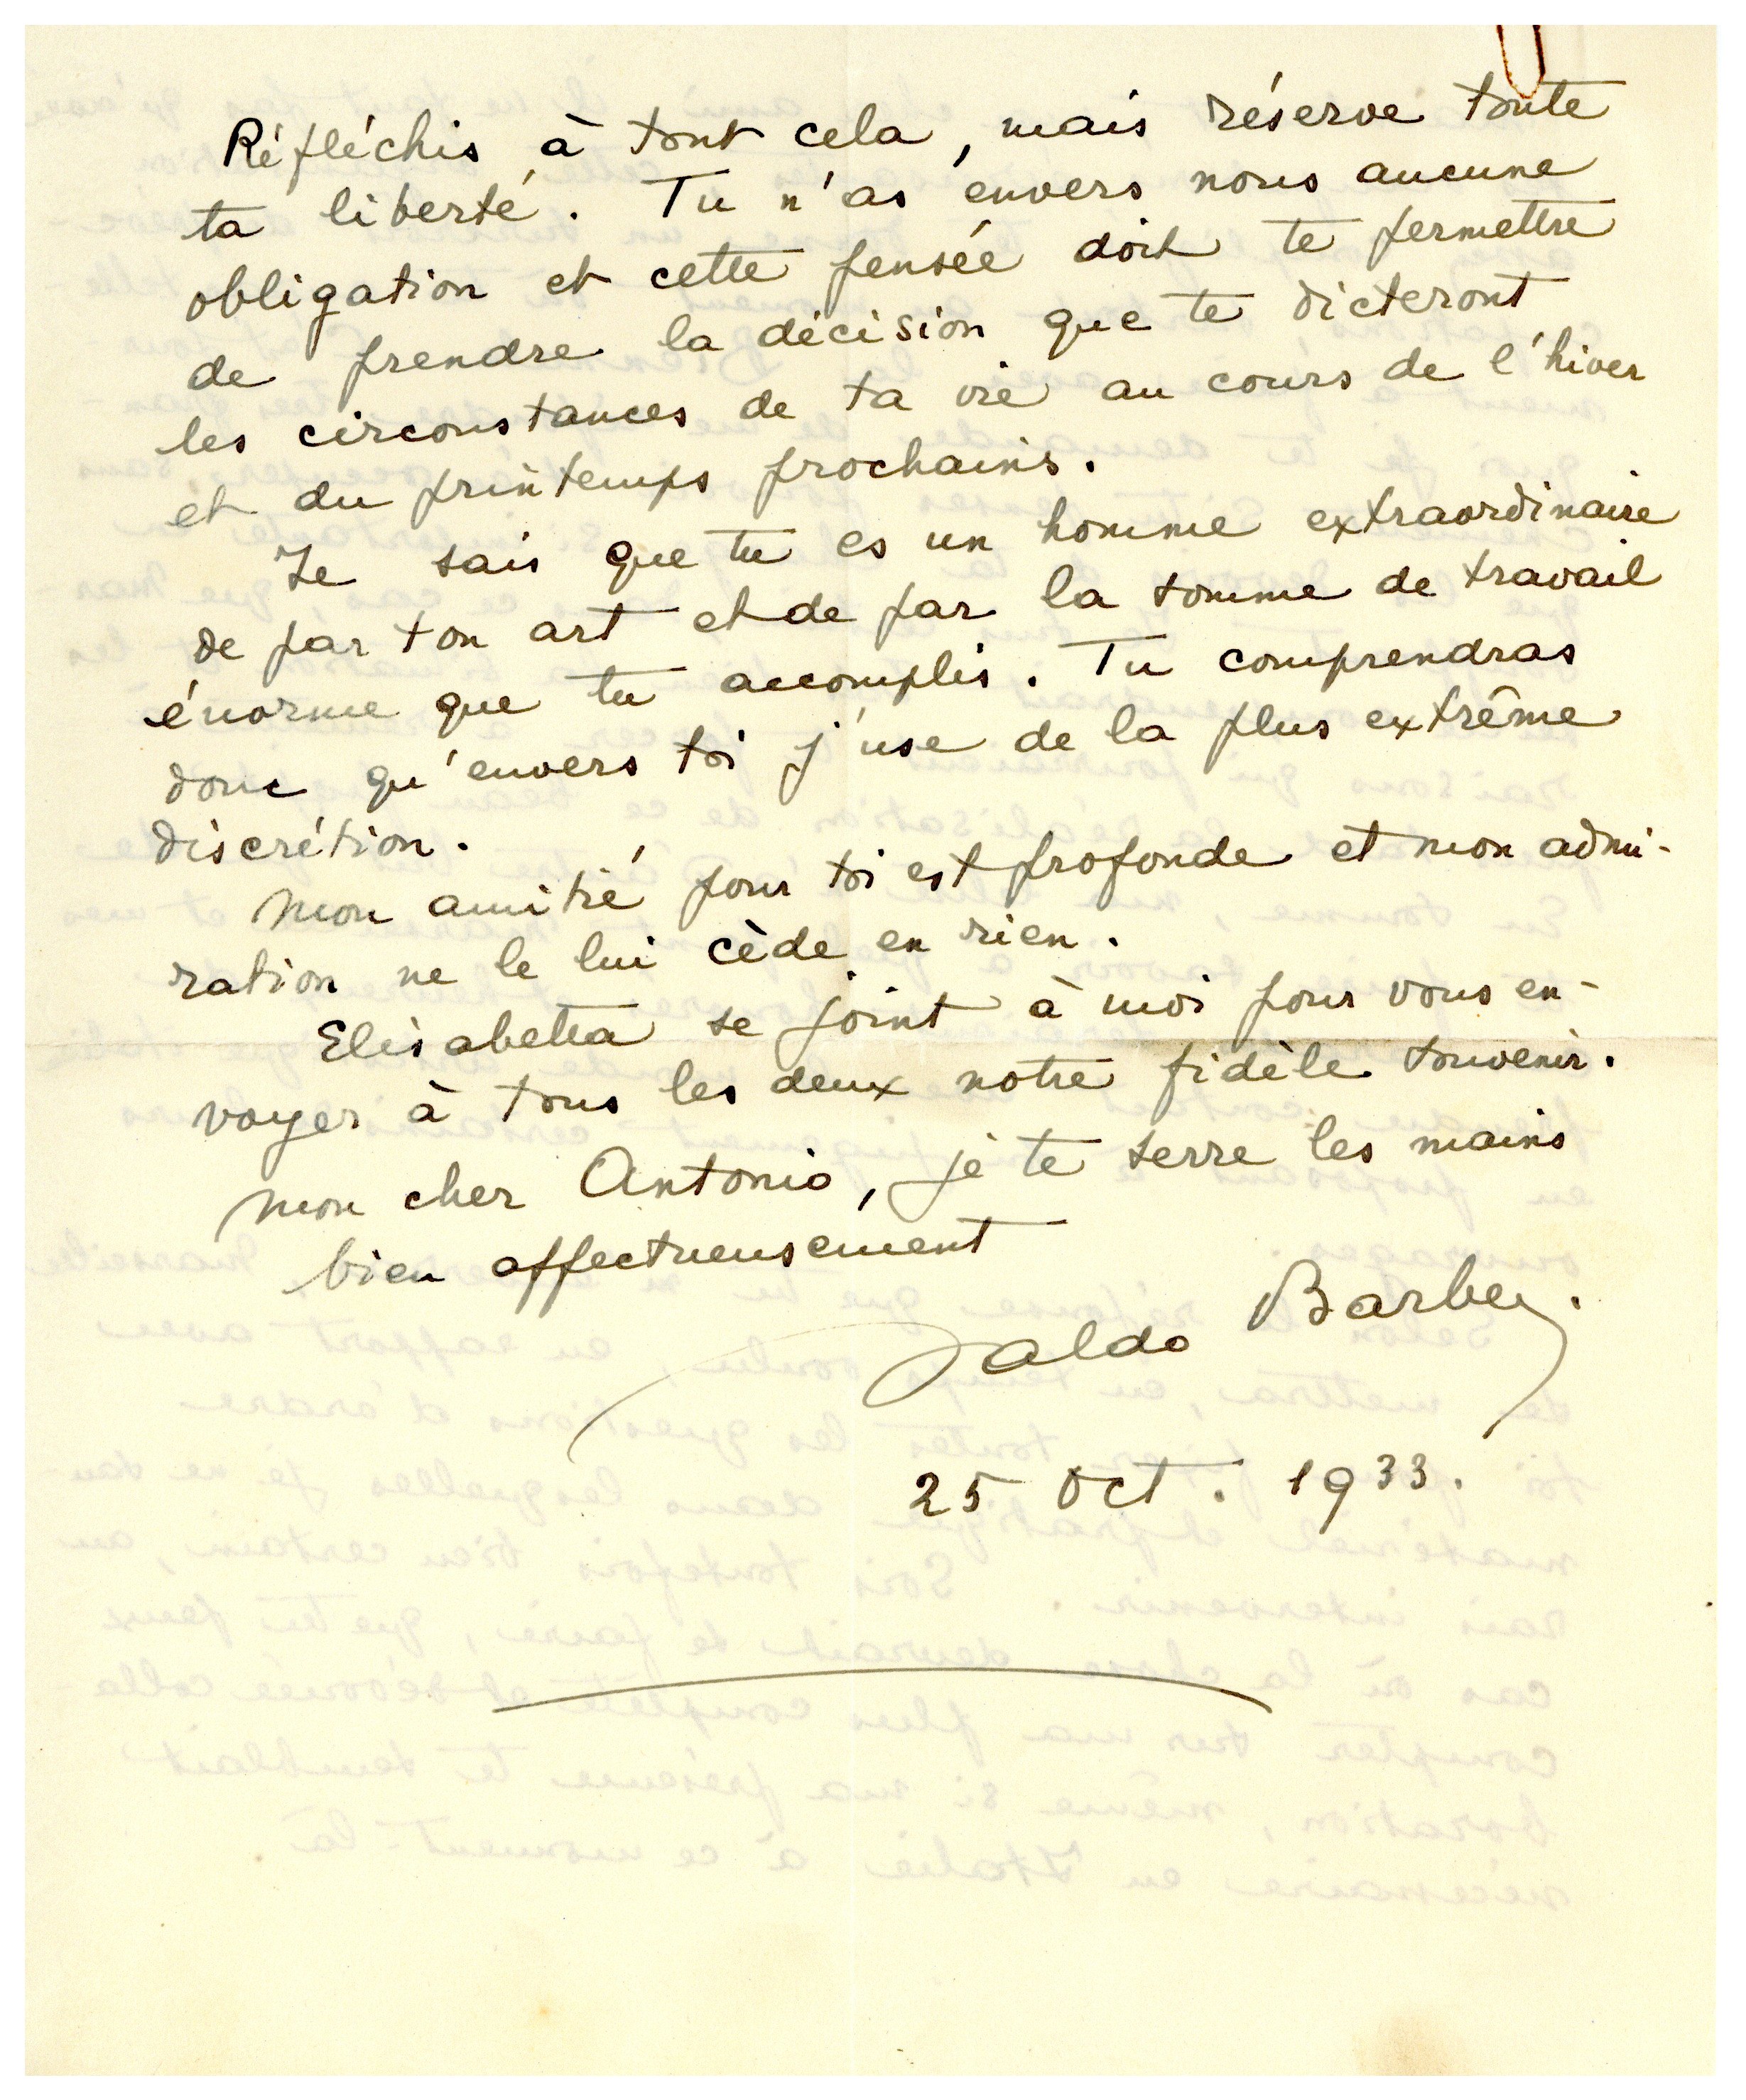 Réfléchis à tout cela, mais réserve toute
ta liberté. Tu n'as envers nous aucune
obligation et cette pensée doit te permettre
de prendre la décision que te dicteront
les circonstances de ta vie au cours de l'hiver
et du printemps prochains.
Je sais que tu es un homme extraordinaire
de par ton art et de par la somme de travail
énorme que tu accomplis. Tu comprendras
donc qu'envers toi j'use de la plus extrême
discrétion.
Mon amitié pour toi est profonde et mon admi-
ration ne le lui cède en rien.
Elisabetta se joint à moi pour vous en-
voyer à tous les deux notre fidèle souvenir.
Mon cher Antonio, je te serre les mains
bien affectueusement
Waldo Barbey.
25 Oct. 1933.